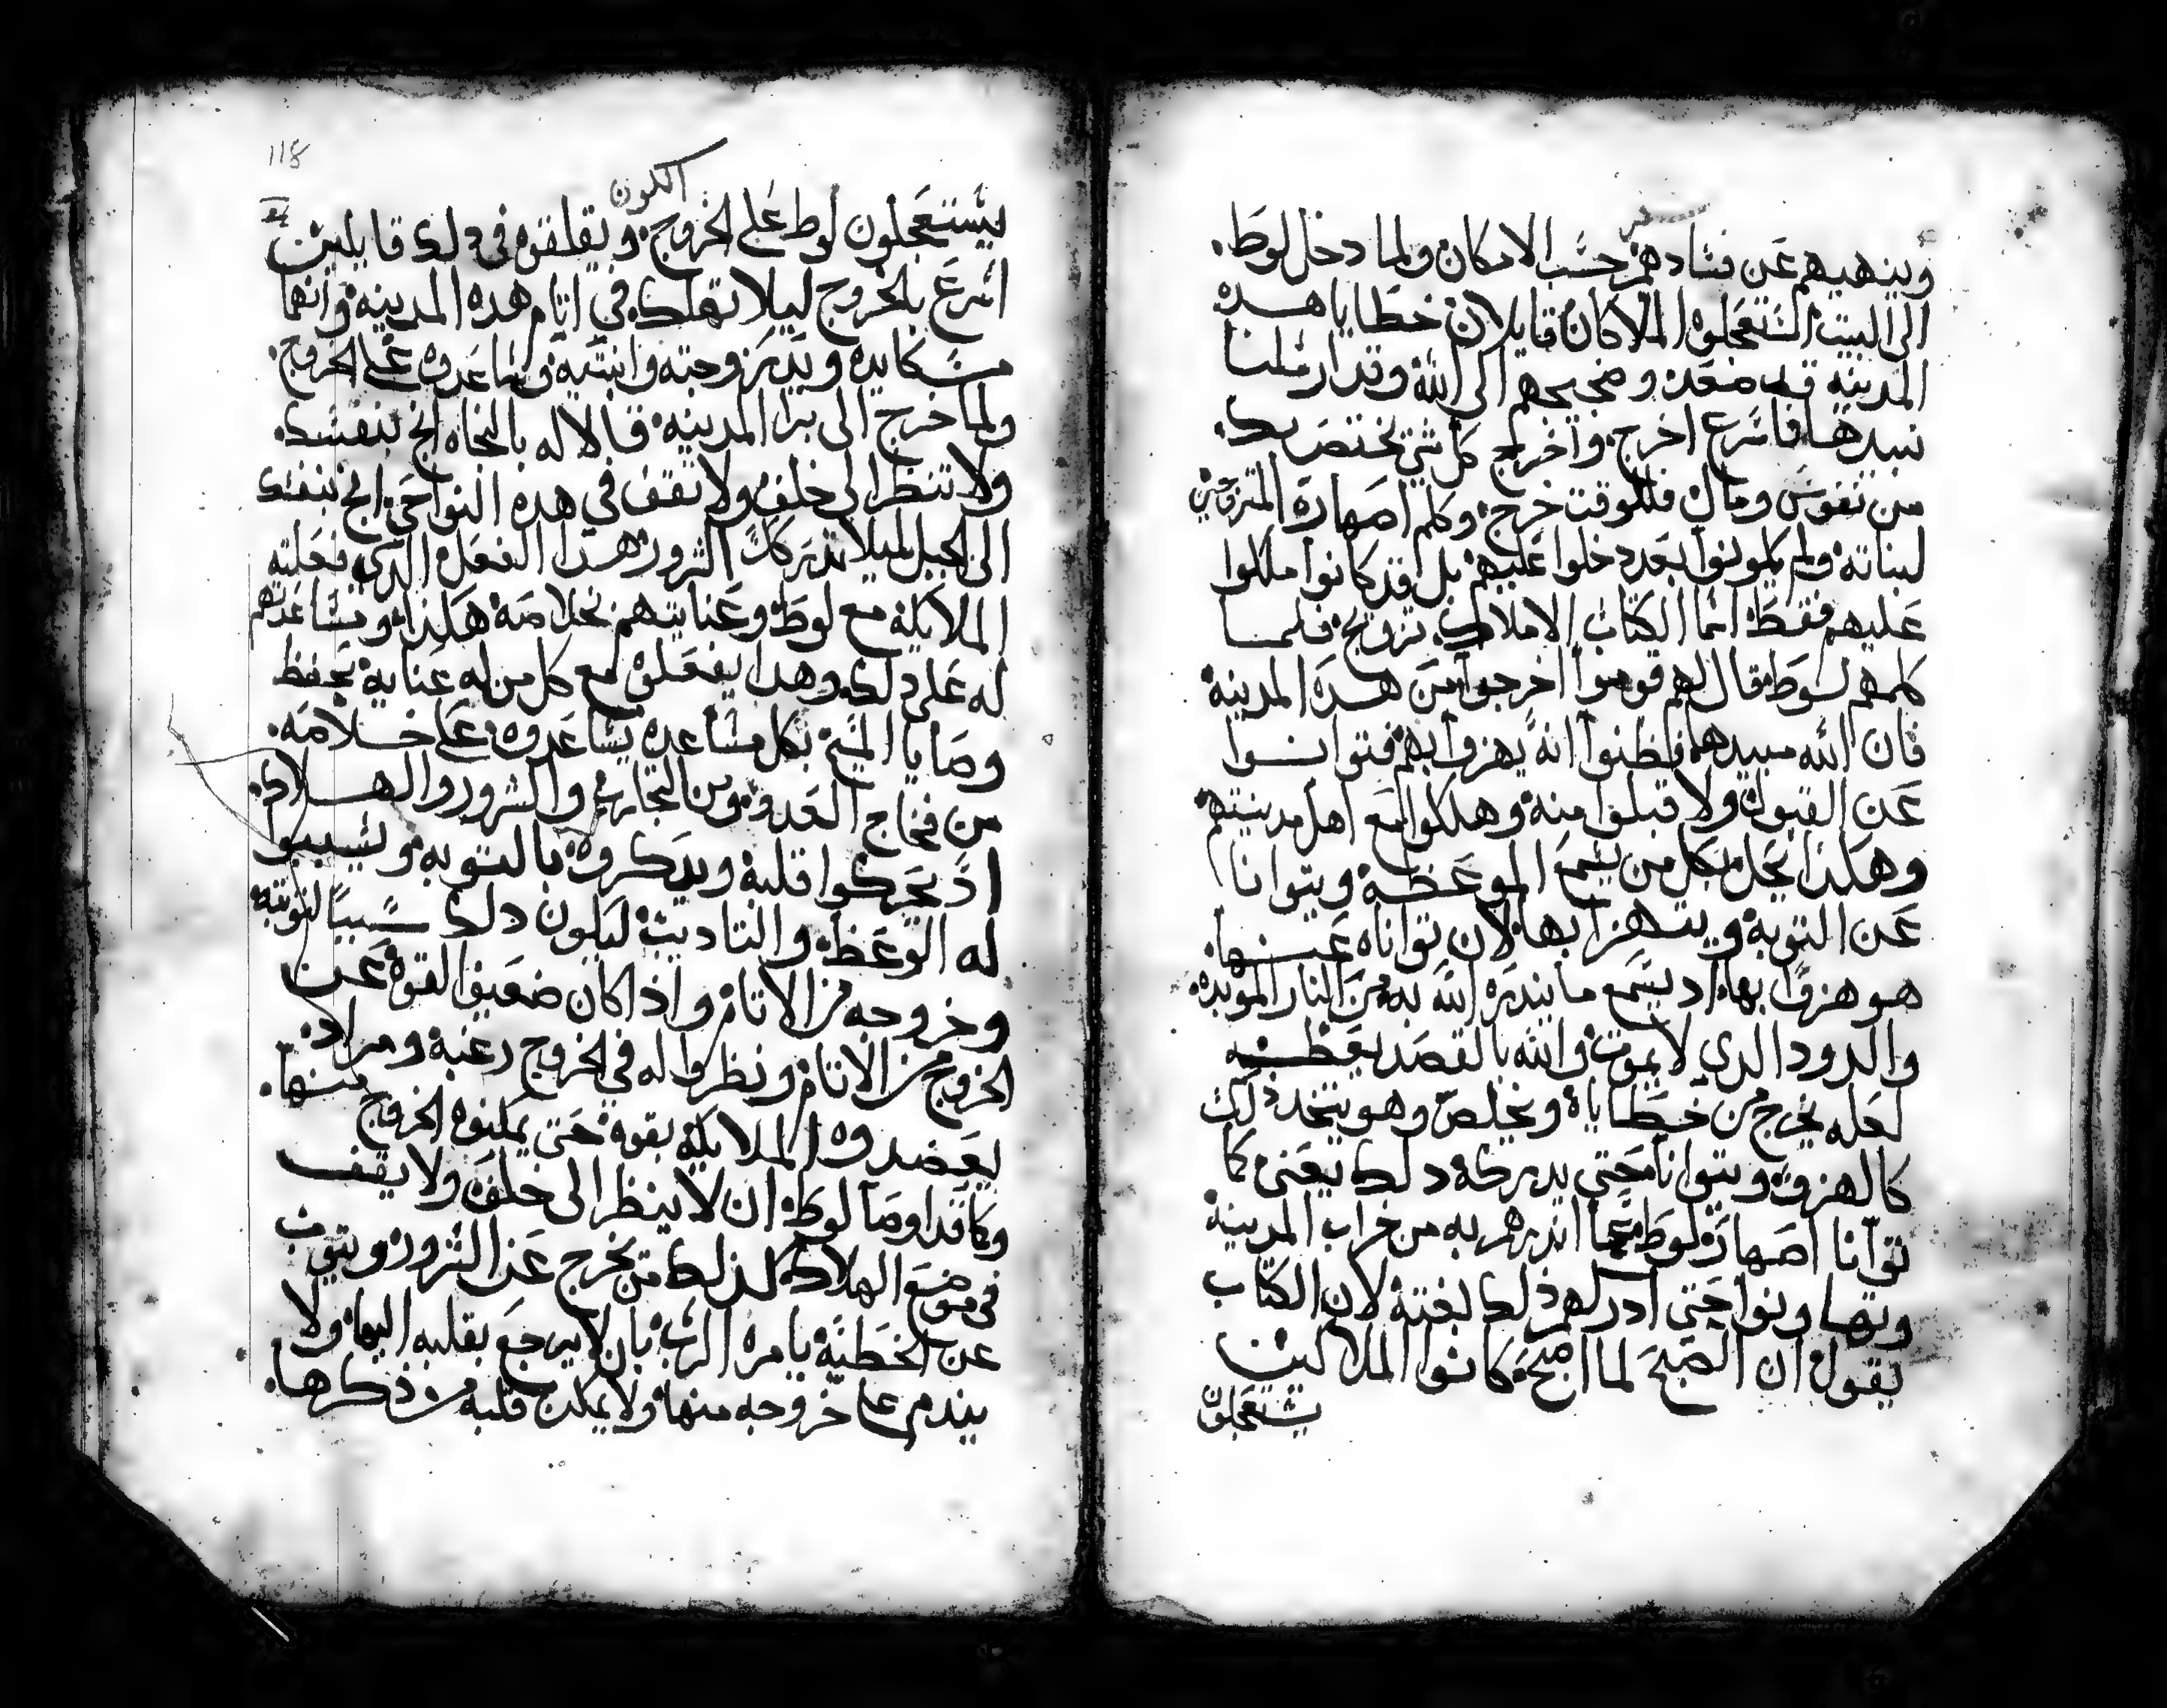 سفر
وينهيهم عن فسادهم حسب الامكان ولما دخل لوط
الى البيت استعجلوه الملاكان قايلان خطايا هده
المدينه قد صعدت وضجيجهم الى الله وقد ارسلنا
نبيدها فاسرع اخرج واخرج كل شي يختص بك
من نفوس ومال فللوقت خرج وكلم اصهاره المتزوجين
لبناته ولم يكونوا بعد دخلوا عليهم بل قد كانوا ملكوا
عليهم فقط انما الكتاب الاملاك تزويج فلما
كلمهم لوط قال لهم قوموا اخرجوا من هده المدينة
فان الله مبيدهم فظنوا انه يهزوا بهم فتوانوا
عن القبول ولا قبلوا منه وهلكوا مع اهل مدينتهم
وهكذا يحل بكل من يسمع الموعظة ويتوانا
عن التوبه ويتهزا بها لان تواناه عنها
هو هزوا بها اد يسمع ما يندره الله به من النار الموبده
والدود الدي لا يموت والله بالقصد يعظه
لعله يخرج من خطاياه ويخلص وهو يتخد ذلك
كالهزو ويتوانا حتي يدركه دلك يعني كما
توانا اصهار لوط عما اندرهم به من خراب المدينة
وتهاونوا حتي ادركهم ذلك بغتة لان الكتاب
يقول ان الصبح لما اصبح كانوا الملاكين
يستعجلون
118
الكون
يستعجلون لوط علي الخروج ويقلقوه في دلك قايلين
اسرع بالخروج ليلا تهلك في اتام هده المدينه وانهما
مسكا يده ويد زوجته وابنتيه وساعدوه علي الخروج
ولما خرج الى برا المدينه قالا له بالنجاه انج بنفسك
ولا تنظر الي خلف ولا تقف في هده النواحي انج بنفسك
الى الجبل ليلا تدركك الشرور هدا الفعل الدي فعلته
الملايكة مع لوط وعنايتهم بخلاصه هكذا ومساعدتهم
له علي دلك وهدا يفعلوه مع كل من له عناية بحفظ
وصايا المسيح بكل مساعده يساعدوه علي خلاصه
من فخاخ العدو ومن التجارب والشرور والهلاك
اذ يحركوا قلبه ويدكروه بالتوبه ويسببوا
له الوعظ والتاديب ليكون دلك سببا لتوبته
وخروجه من الاتام واذا كان ضعيف القوة عن
الخروج من الاتام ونظروا له في الخروج رغبة ومراد
يعضدوه الملايكة بقوه حتي يمكنوه الخروج منها
وكما قد اوصا لوط ان لا ينظر الى خلف ولا يقف
في موضع الهلاك كذلك من يخرج عن الشرور ويتوب
عن الخطية يامره الرب بان لا يرجع بقلبه اليها ولا
يندم علي خروجه منها ولا يمكن قلبه من ذكرها